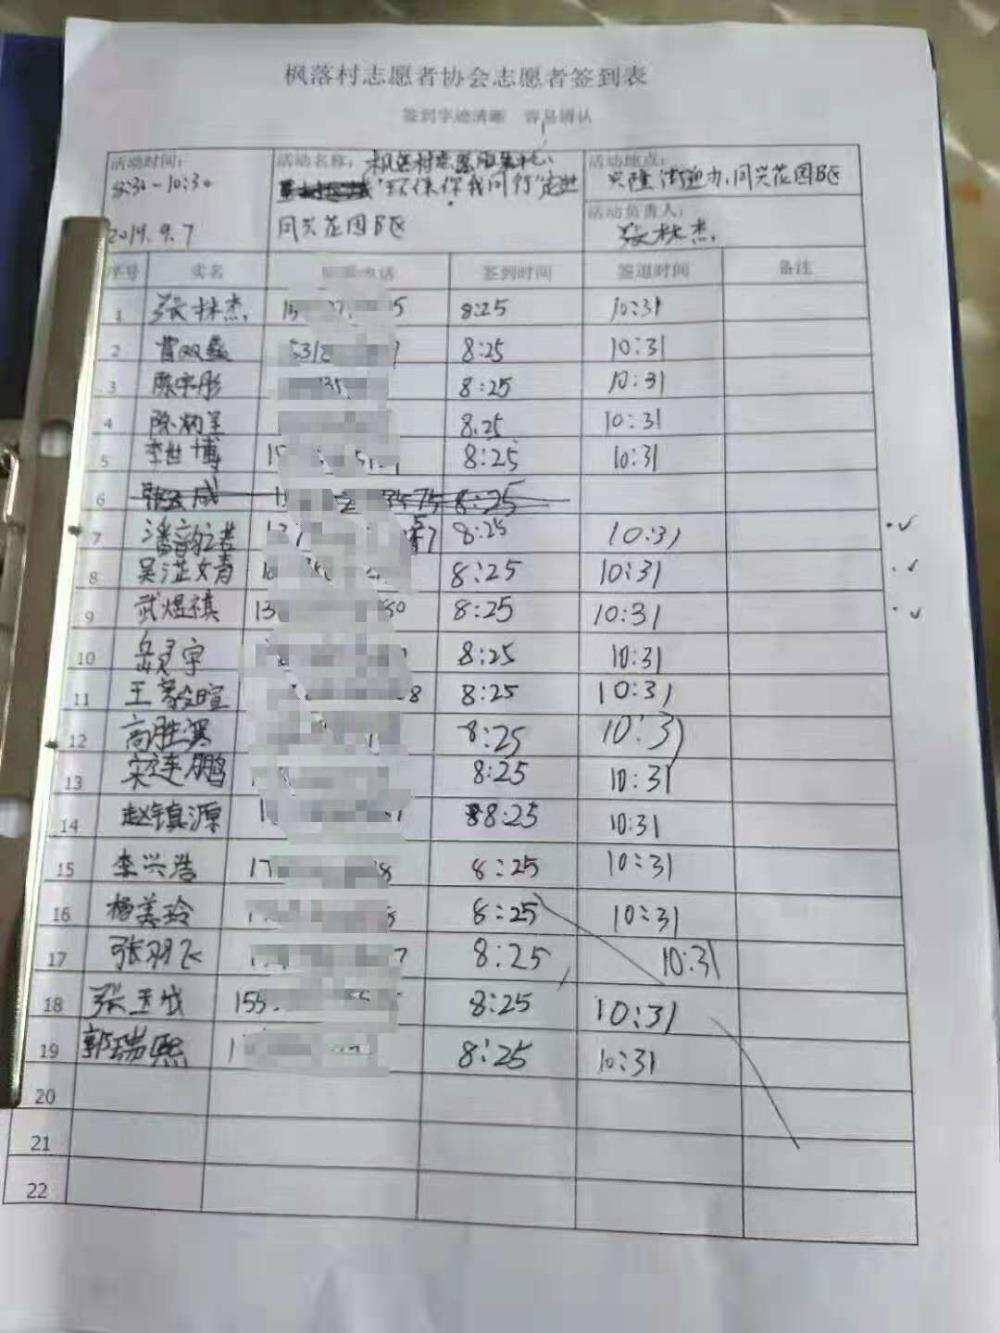 枫落村志愿者协会志愿者签到表
签到字迹清晰 容易确认
活动时间: 8:30-10:30 2019.9.7
活动名称: 枫落村志愿 "环保你我同行"走进同兴花园B区
活动地点: 兴隆街迎办,同兴花园B区
活动负责人: 张林杰
序号 实名 电话 签到时间 签退时间 备注
1 张林杰 15 5 8:25 10:31
2 531 8:25 10:31
3 陈宇彤 35 8:25 10:31
4 陈炳 8.25 10:31
5 李世博 15 8:25 10:31
6 成 3475 8:25
7 潘韵 13 7 8:25 10:31
8 吴芷文青 8:25 10:31
9 武煜祺 13 80 8:25 10:31
10 岳灵宇 8:25 10:31
11 王毅暄 8 8:25 10:31
12 高胜寒 8:25 10:31
13 宋连鹏 8:25 10:31
14 赵镇源 1 8:25 10:31
15 李兴浩 17 8 8:25 10:31
16 杨美玲 8:25 10:31
17 张羽飞 7 8:25 10:31
18 张玉成 155 8:25 10:31
19 郭瑞熙 1 8:25 10:31
20
21
22